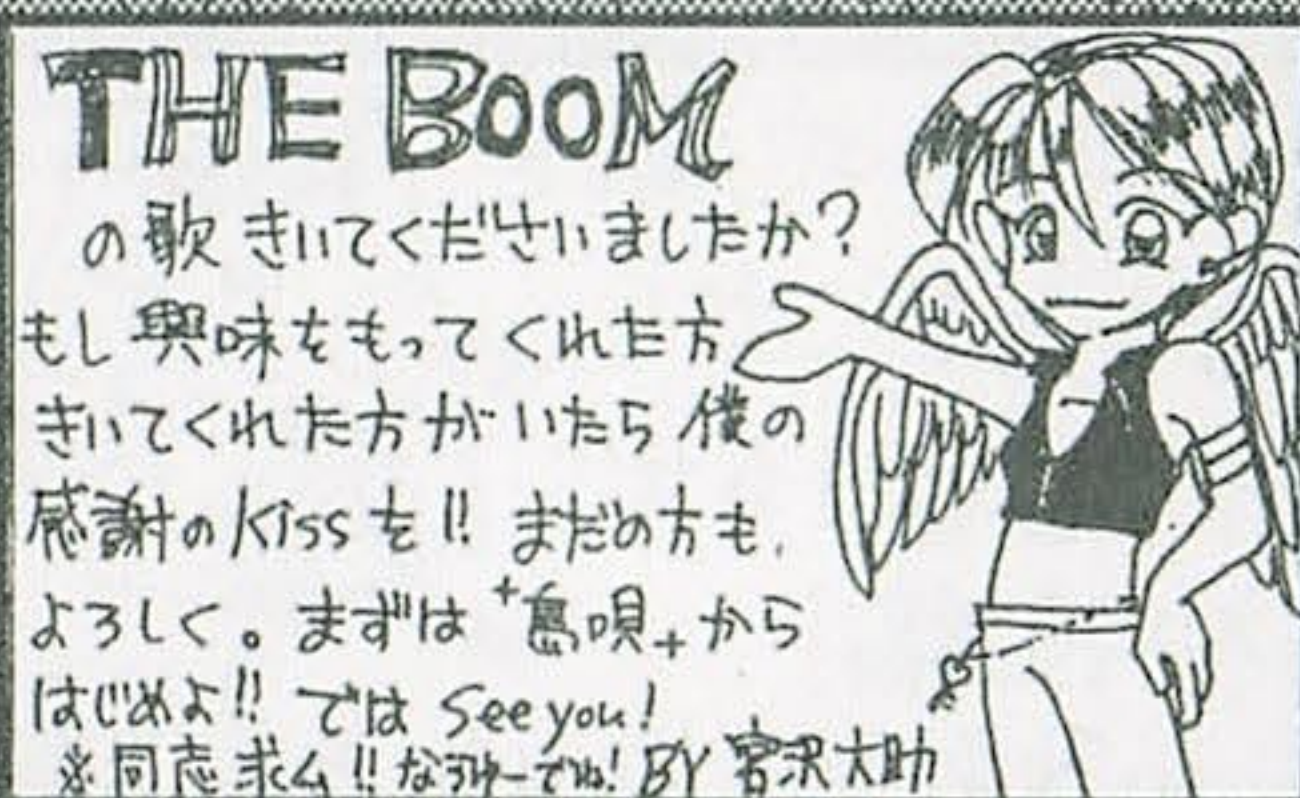 THE BOOM
の歌 きいてくださいましたか?
もし 興味をもって くれた方
きいてくれた方が いたら 僕の
感謝の Kiss を!! まだの方も、
よろしく。まずは "島唄" から
はじめよ!! では See you!
※同志求ム!! でね! BY 宮沢大助